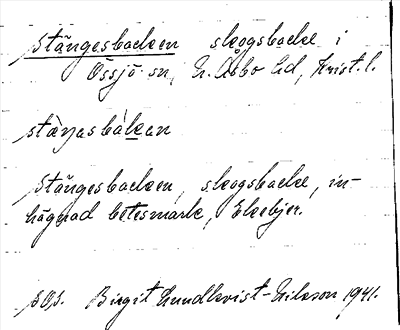 Stängesbacken skogsbacke i
Össjö sn, N. Åsbo hd, Krist. l.
stàŋasbàkan
Stängesbacken, skogsbacke, in-
hägnad betesmark, Ekebjer.
Birgit Lundkvist-Nilsson 1941.